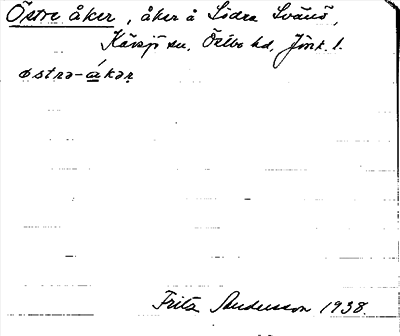 Östre åker, åker å Södra Svänö,
Kävsjö sn, Östbo hd, Jönk. l.
østrə-åkər
Fritz Andersson 1938